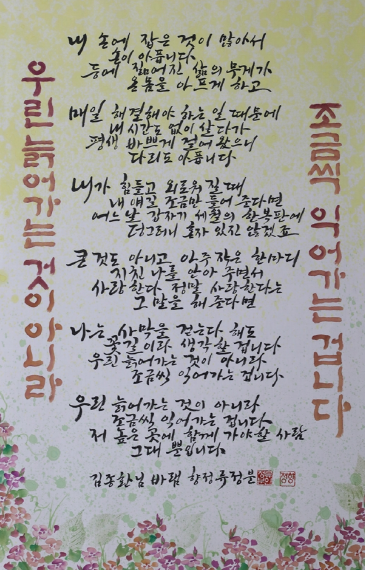 우린 늙어가는 것이 아니라
내 손에 잡은 것이 많아서
손이 아픕니다
등에 짊어진 삶의 무게가
온몸을 아프게 하고
매일 해결해야 하는 일 때문에
내 시간도 없이 살다가
평생 바쁘게 걸어 왔으니
다리도 아픕니다
내가 힘들고 외로워 질 때
내 얘길 조금만 들어 준다면
어느 날 갑자기 세월의 한복판에
덩그러니 혼자 있진 않겠죠
큰 것도 아니고 아주 작은 한마디
지친 나를 안아 주면서
사랑한다 정말 사랑한다는
그 말을 해 준다면
나는 사막을 걷는다 해도
꽃길이라 생각할 겁니다
우린 늙어가는 것이 아니라
조금씩 익어가는 겁니다
우린 늙어가는 것이 아니라
조금씩 익어가는 겁니다
저 높은 곳에 함께 가야할 사람
그대 뿐입니다
김종환님 바램 향정 류정분
조금씩 익어가는 겁니다